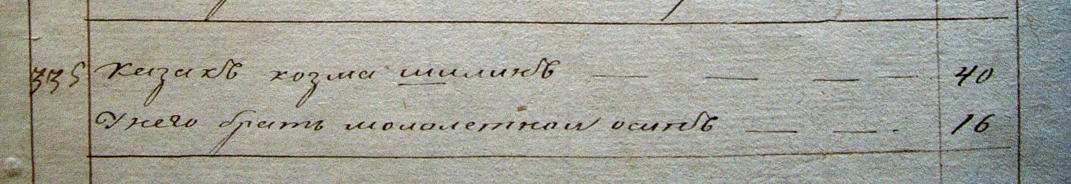 335 казакъ козма шиликъ — — — — 40
У него братъ мололетнои осипъ — — 16